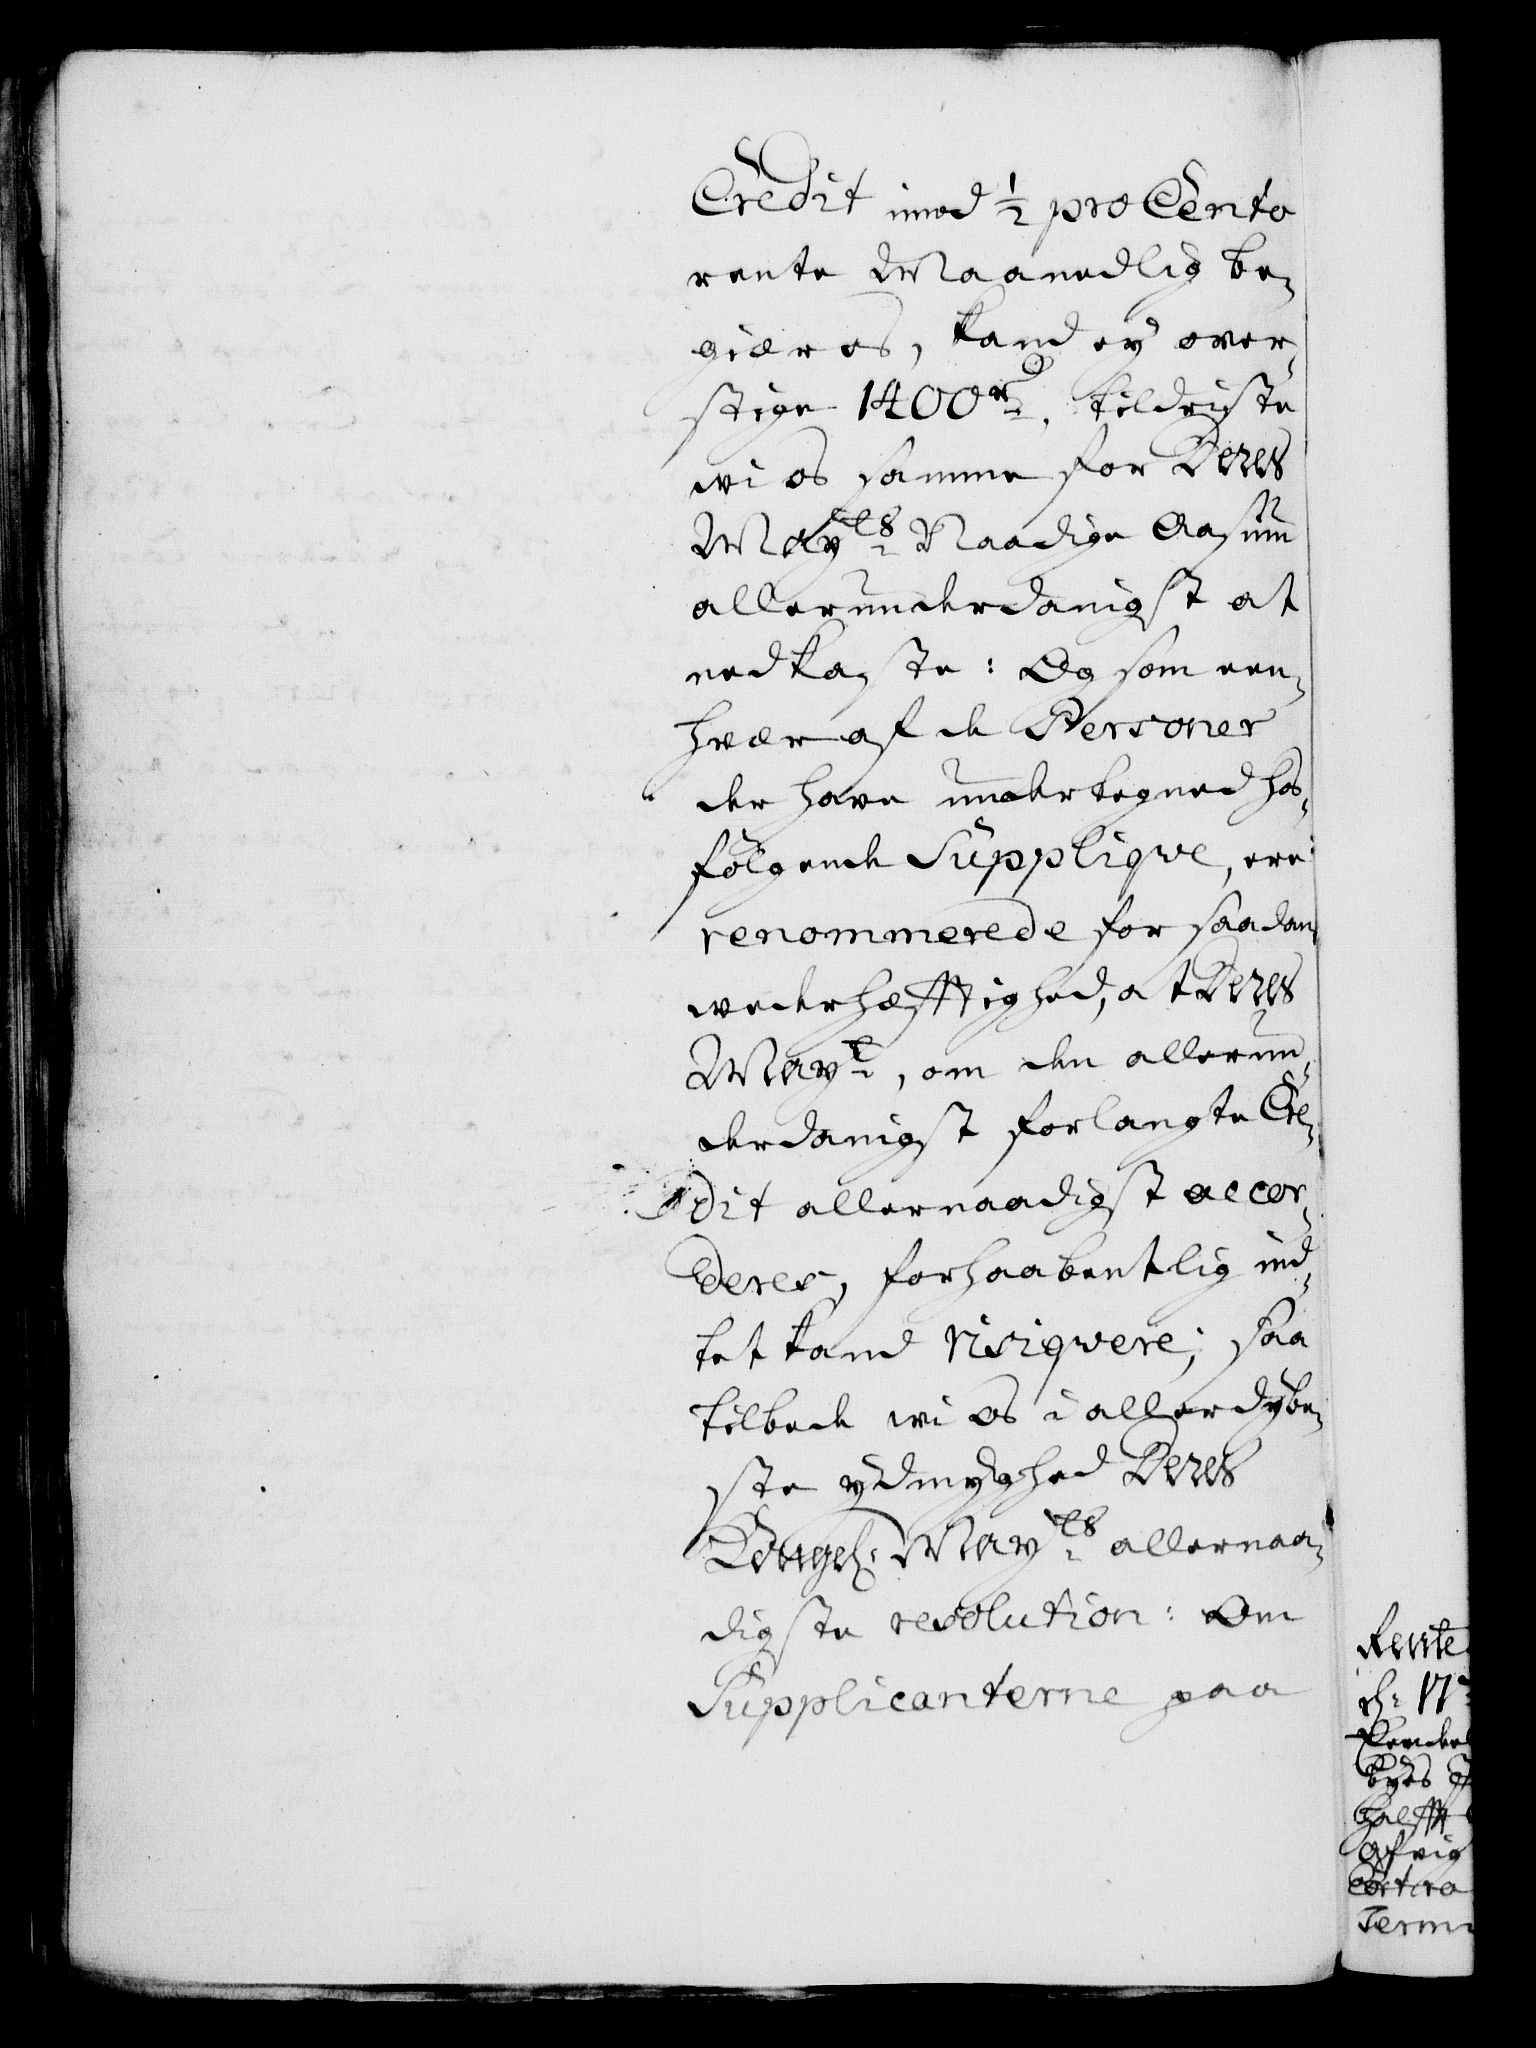 Credit imod ½ pro Cento
rente Maanedlig be-
giæres, kand ey over-
stige 1400 rd, tildriste
wi os samme for Deres
Mayts Naadige Aasiun
allerunderdanigst at
nedkaste: Og som een-
hvær af de Personer
der have undertegned hos-
følgende Supplique, ere
renommerede for saadan
wederhæfftighed, at Deres
Mayt, om den allerun-
derdanigst forlangte Cre-
dit allernaadigst accor-
deres, forhaabentlig ind-
tet kand risiqvere; saa
tilbede wi os i allerdybe-
ste ydmyghed Deres
Kongel. Mayts allernaa-
digste resolution: Om
Supplicanterne paa
Rente
byes
halfft
Termi